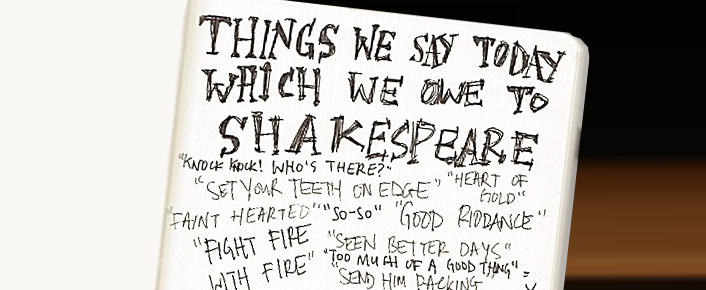 THINGS WE SAY TODAY
WHICH WE OWE TO
SHAKESPEARE
"KNOCK KNOCK! WHO'S THERE?"
"HEART OF GOLD"
"SET YOUR TEETH ON EDGE"
"FAINT HEARTED" "SO-SO" "GOOD RIDDANCE"
"FIGHT FIRE WITH FIRE"
"SEEN BETTER DAYS"
"TOO MUCH OF A GOOD THING"
"SEND HIM PACKING